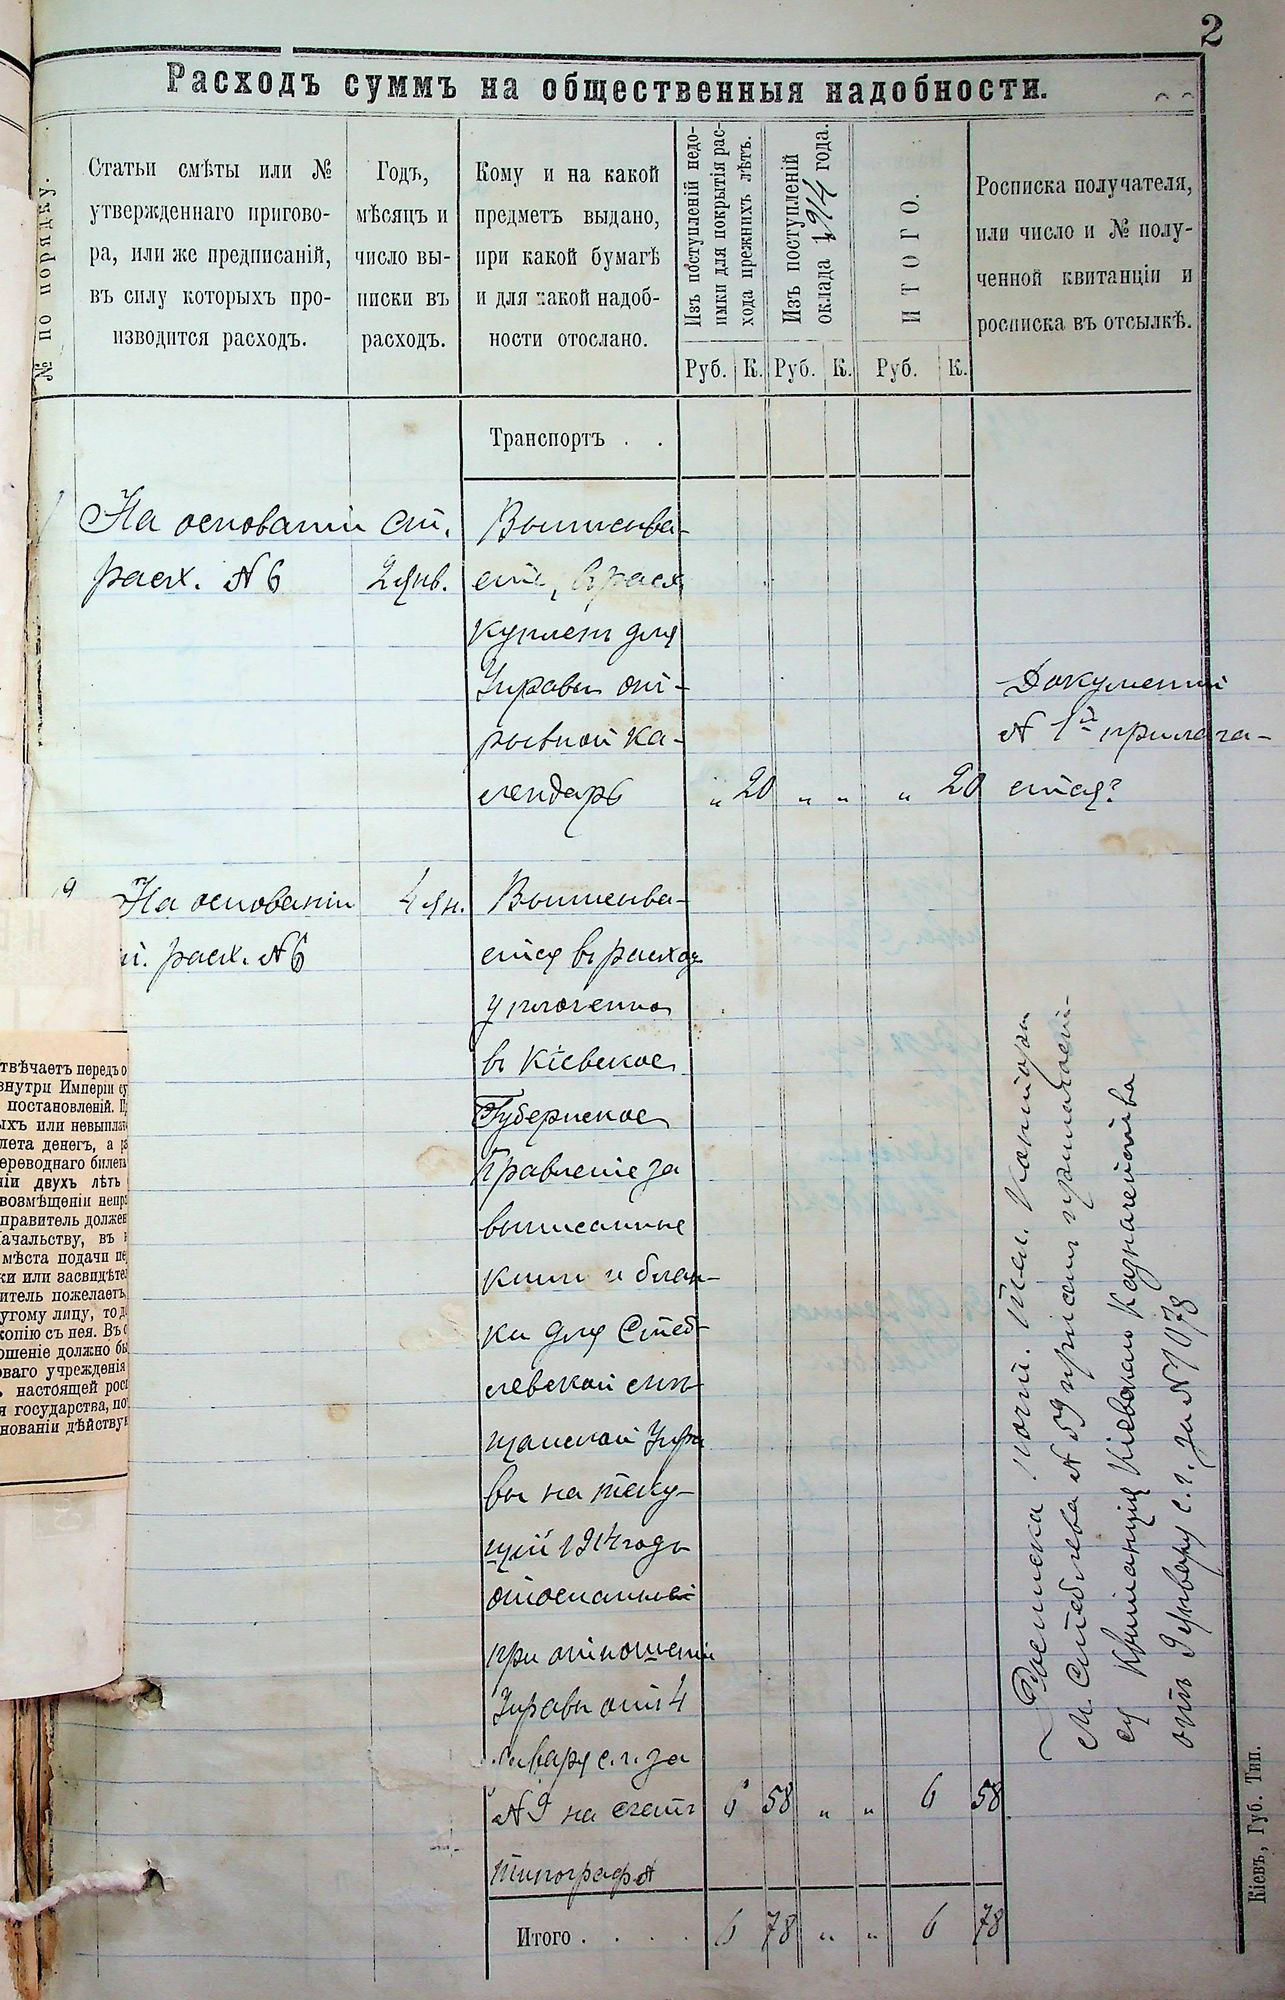 2
Расходъ суммъ на общественныя надобности.
№ по порядку.
Статьи смѣты или №
утвержденнаго пригово-
ра, или же предписаній,
въ силу которыхъ про-
изводится расходъ.
Годъ,
мѣсяцъ и
число вы-
писки въ
расходъ.
Кому и на какой
предметъ выдано,
при какой бумагѣ
и для какой надоб-
ности отослано.
Изъ поступленій недо-
имки для покрытія рас-
хода прежнихъ лѣтъ.
Изъ поступленій
оклада 1914 года.
ИТОГО.
Росписка получателя,
или число и № полу-
ченной квитанціи и
росписка въ отсылкѣ.
Руб. К. Руб. К. Руб. К.
Транспортъ . .
1
На основаніи ст.
расх. № 6
2 Янв.
Выписыва-
ется въ расх
купленъ для
Управы от-
рывной ка-
лендарь
„ 20 „ „ „ 20
Документъ
№ 1й прилага-
ется
2
На основаніи
ст. расх. № 6
4 Ян.
Выписыва-
ется въ расходъ
уплоченно
въ Кіевское
Губернское
Правленіе за
выписанные
книги и блан-
ки для Стеб-
левской мѣ-
щанской Упра
вы на теку-
щій 1914 годъ
отосланные
при отношеніи
Управы отъ 4
Января с. г. за
№ 9 на счетъ
типографіи
6 58 „ „ 6 58
Росписка почт. тел. Конторы
м. Стеблева № 59 при семъ прилагает-
ся Квитанція Кіевскаго Казначейства
отъ 9 Января с. г. за № 1078
Итого . . . .
6 78 „ „ 6 78
Кіевъ, Губ. Тип.
твѣчаетъ передъ о
внутри Имперіи су
постановленій. Пр
ыхъ или невыплат
лета денегъ, а ра
ереводнаго билета
ніи двухъ лѣтъ
возмѣщеніи непра
правитель должен
ачальству, въ в
мѣста подачи пе
ки или засвидѣте
итель пожелаетъ
угому лицу, то до
копію съ нея. Въ с
ошеніе должно бы
ваго учрежденія
настоящей рос
я государства, по
нованіи дѣйству